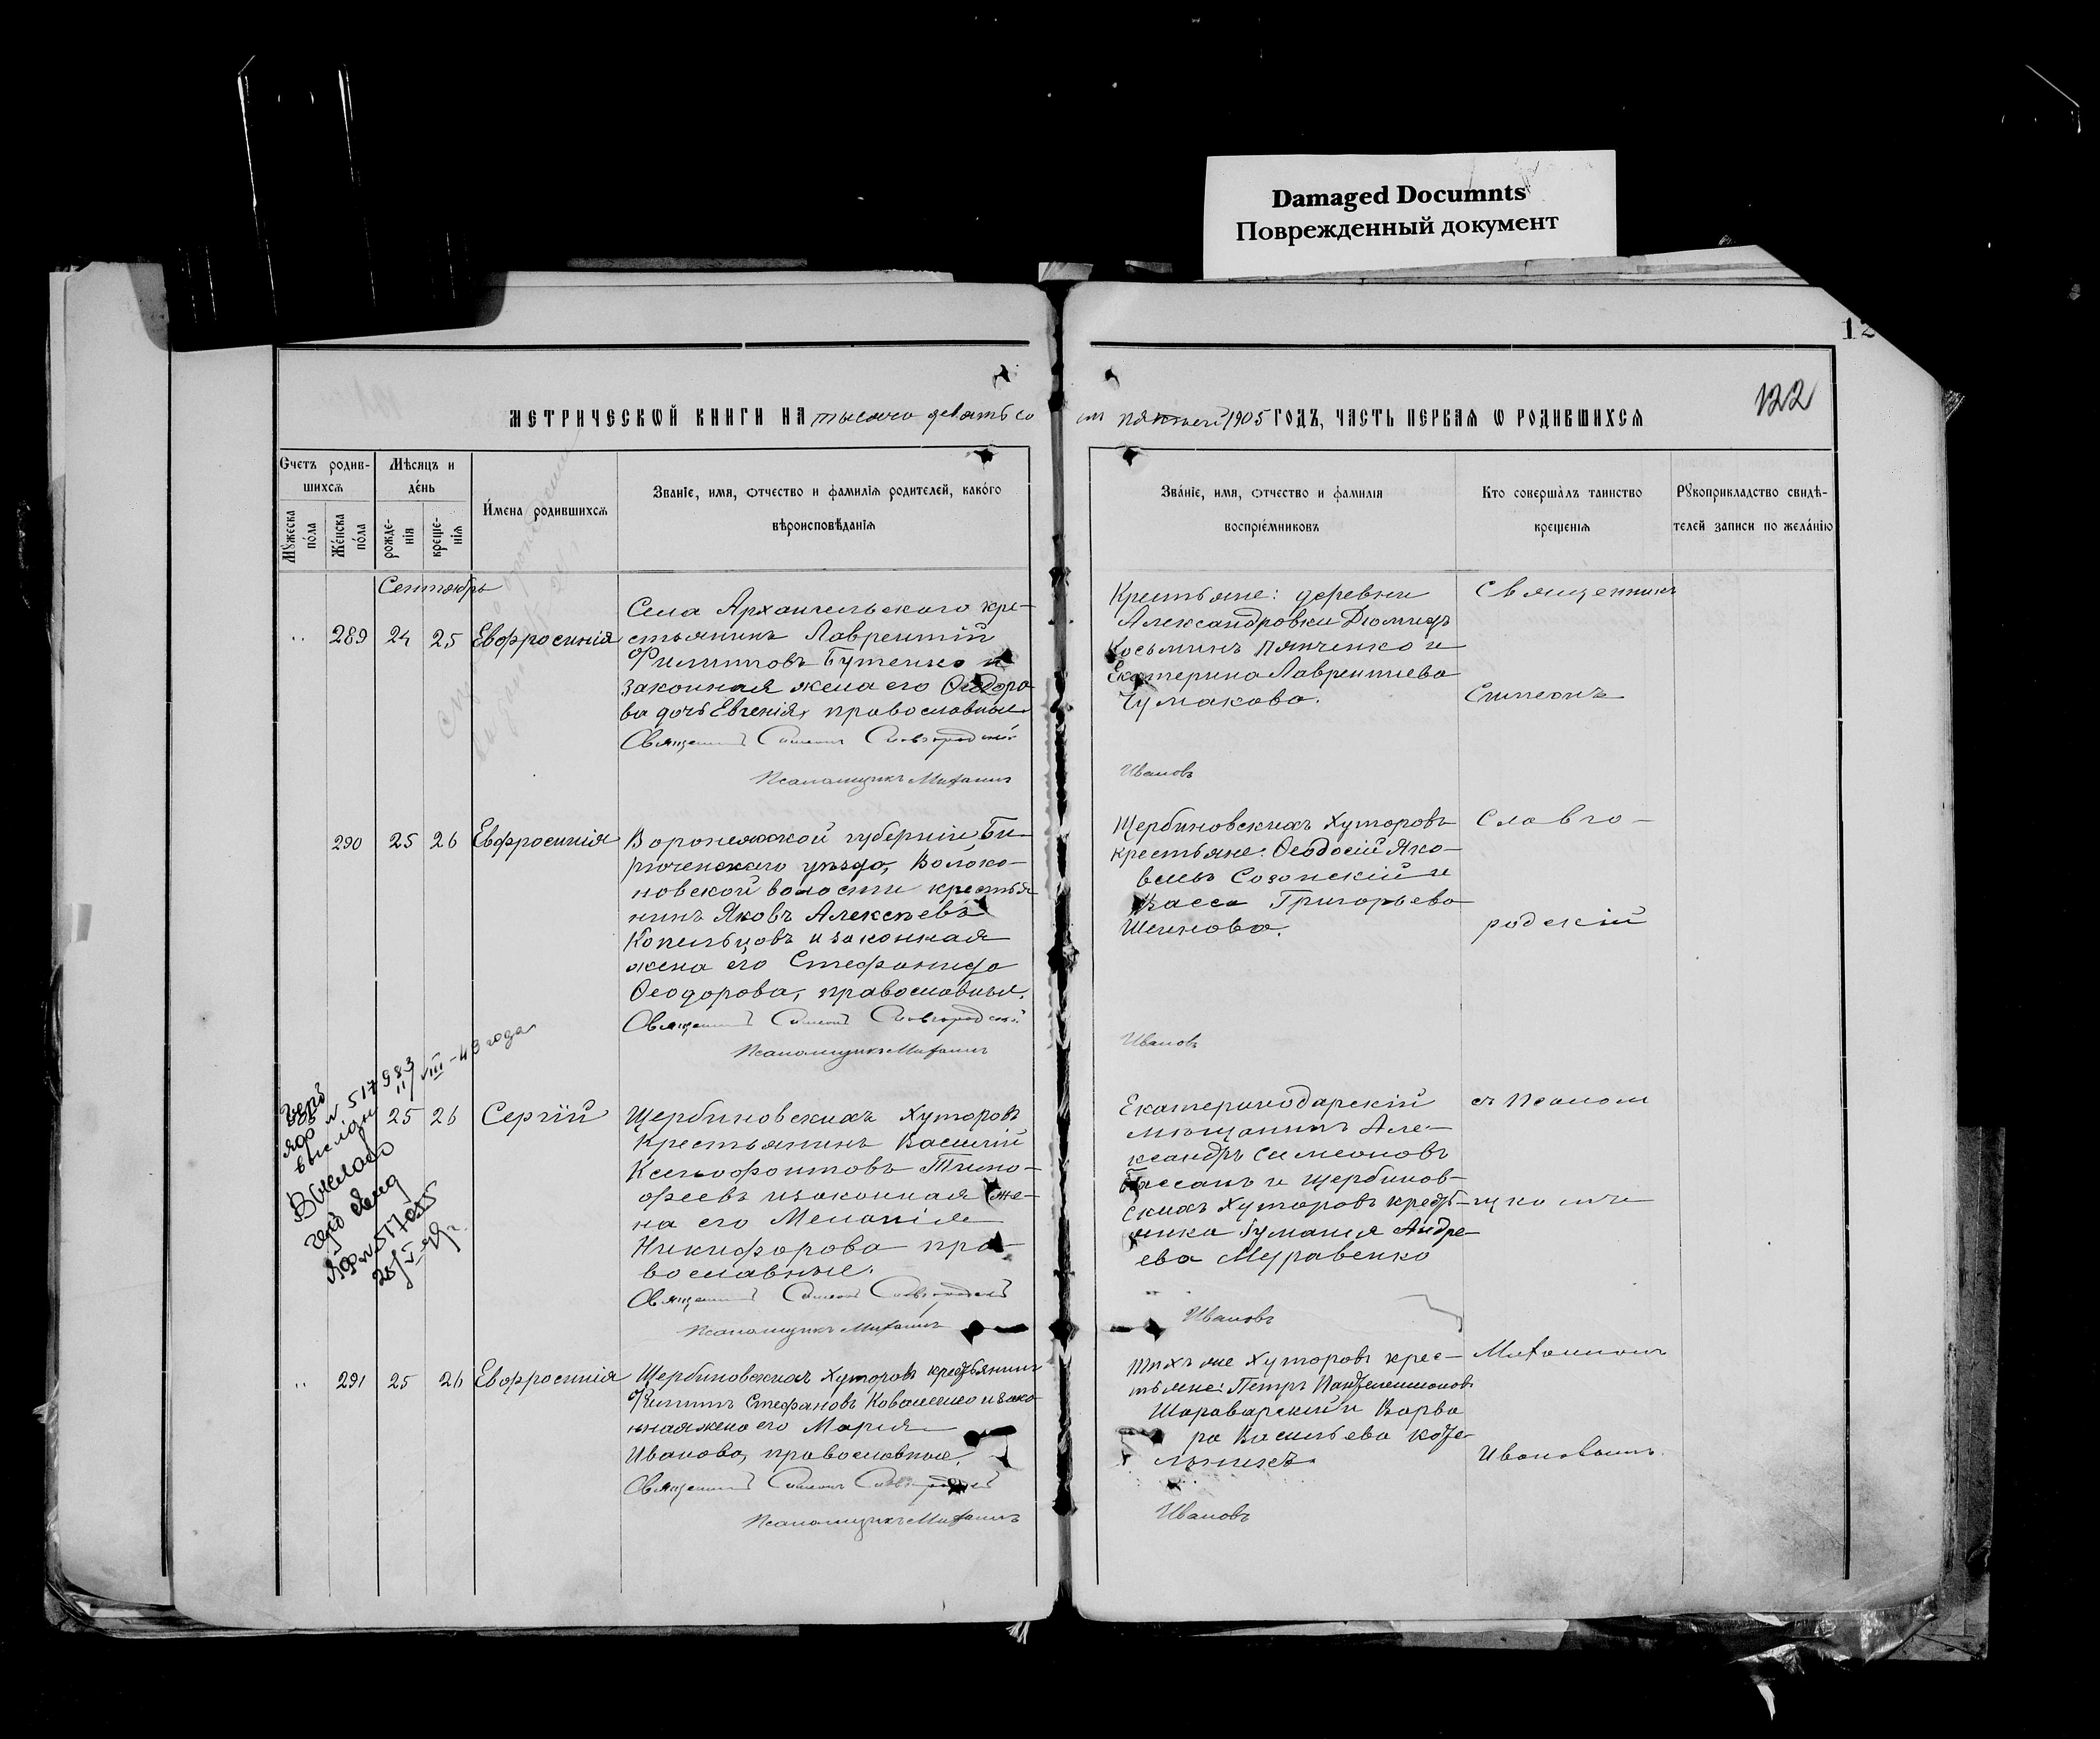 Damaged Documnts
Поврежденный документ
12
122
МЕТРИЧЕСКОЙ КНИГИ НА тысяча девятьсо
тъ пятый 1905 ГОДЪ, ЧАСТЬ ПЕРВАЯ Ѡ РОДИВШИХСЯ
Счетъ родив-
шихся
Мѣсяцъ и
день
Мужеска
пола
Женска
пола
рожде-
нія
креще-
нія
Имена родившихся
Званіе, имя, отчество и фамилія родителей, какого
вѣроисповѣданія
Званіе, имя, отчество и фамилія
воспріемниковъ
Кто совершалъ таинство
крещенія
Рукоприкладство свидѣ-
телей записи по желанію
Сентябрь
289 24 25 Евфросинія
Села Архангельскаго кре-
стьянинъ Лаврентій
Филипповъ Бутенко и
законная жена его Ѳеодоро-
ва дочь Евгенія, православные.
Священникъ Симеонъ Славгородскій
Псаломщикъ Михаилъ
Крестьяне: деревни
Александровки Диомидъ
Косьминъ Панченко и
Екатерина Лаврентіева
Чумакова.
Иванов
Священникъ
Симеонъ
290 25 26 Евфросинія
Воронежской губерніи, Би-
рюченскаго уѣзда, Волоко-
новской волости крестья
нинъ Яковъ Алексѣевъ
Копельцовъ и законная
жена его Стефанида
Ѳеодорова, православные.
Священникъ Симеонъ Славгородскій
Псаломщикъ Михаилъ
Щербиновскихъ Хуторовъ
крестьяне: Ѳеодосій Яко-
влевъ Созонскій и
Васса Григорьева
Шеинова.
Иванов
Славго-
родскій
517983
11/VIII-43 года
25 26 Сергій
Щербиновскихъ Хуторовъ
крестьянинъ Василій
Ксенофонтовъ Тимо-
феевъ и законная же-
на его Меланія
Никифорова пра-
вославные.
Священникъ Симеонъ Славгородскій
Псаломщикъ Михаилъ
Екатеринодарскій
мѣщанинъ Але-
ксандръ Симеоновъ
Бассанъ и Щербинов-
скихъ Хуторовъ крестья-
нка Андре-
ева Муравенко
Иванов
съ Псалом
щикомъ
291 25 26 Евфросинія
Щербиновскихъ Хуторовъ крестьянинъ
Филиппъ Стефановъ Коваленко и зако-
нная жена его Марія
Иванова, православные.
Священникъ Симеонъ Славгородскій
Псаломщикъ Михаилъ
Тѣхъ же Хуторовъ крес-
тьяне: Петръ Пантелеимоновъ
Шараварскій и Варва
ра Васильева Коте-
Иванов
Михаиломъ
Ивановымъ.